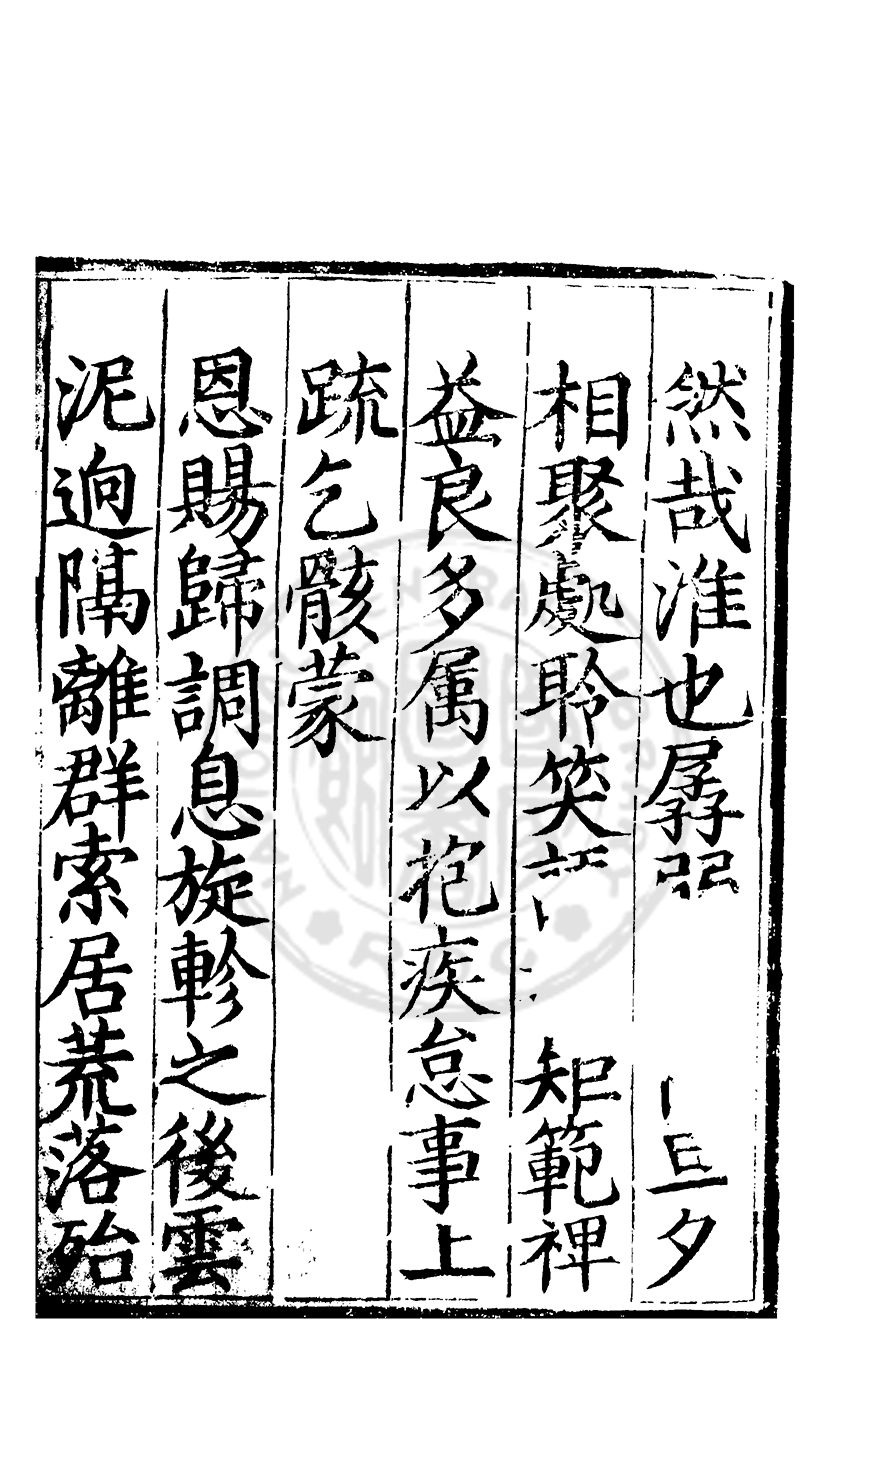 然哉淮也孱弱旦夕
相聚處聆笑矩範裨
益良多属以抱疾怠事上
疏乞骸蒙
恩賜歸調息旋軫之後雲
泥逈隔離群索居荒落殆